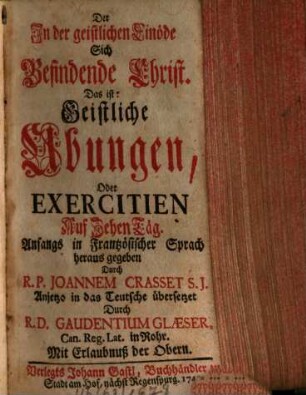 Der
In der geistlichen Einöde
Sich
Befindende Christ.
Das ist:
Geistliche
Ubungen,
Oder
EXERCITIEN
Auf Zehen Täg.
Anfangs in Frantzösischer Sprach
heraus gegeben
Durch
R. P. JOANNEM CRASSET S. J.
Anjetzo in das Teutsche übersetzet
Durch
R. D. GAUDENTIUM GLÆSER,
Can. Reg. Lat. in Rohr.
Mit Erlaubnuß der Obern.
Verlegts Johann Gastl, Buchhändler
Stadt am Hof, nächst Regenspurg.